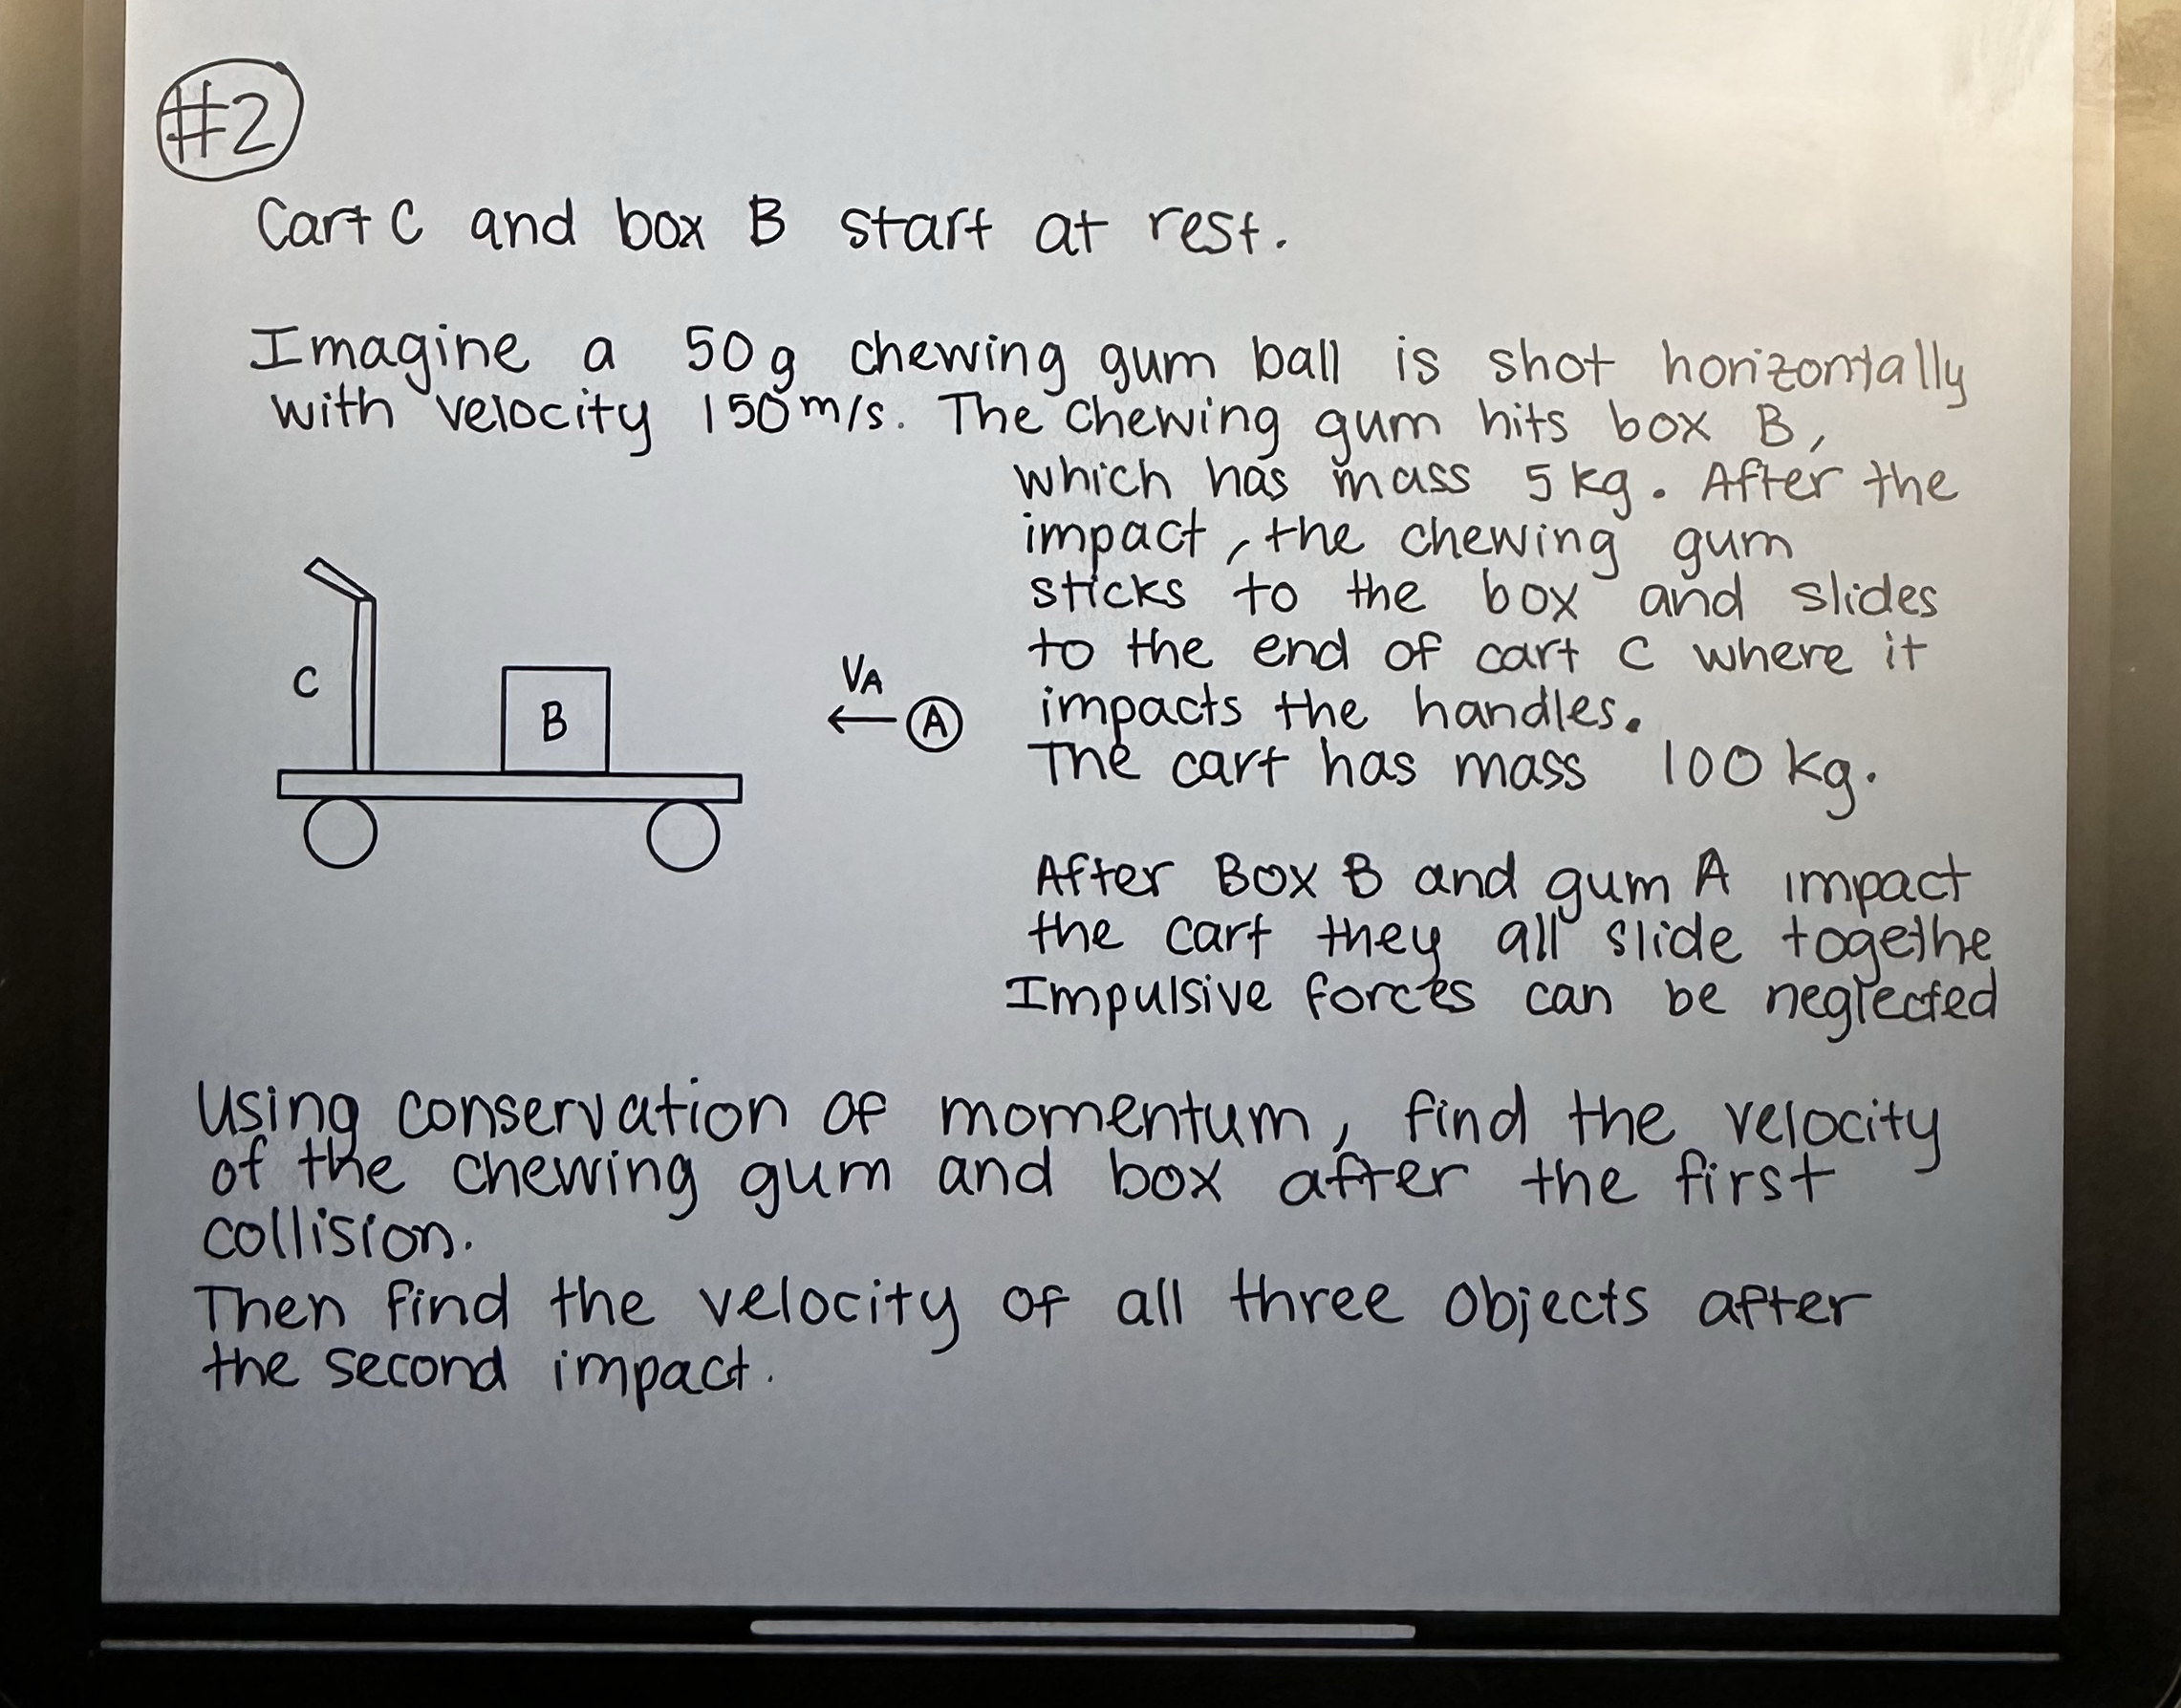 #2
Cart C and box B start at rest.
Imagine a 50g chewing gum ball is shot horizontally
with velocity 150m/s. The chewing gum hits box B,
which has mass 5kg. After the
impact, the chewing gum
sticks to the box and slides
to the end of cart C where it
impacts the handles.
The cart has mass 100 kg.
C
B
VA
A
After Box B and gum A impact
the cart they all slide togethe
Impulsive forces can be neglected
Using conservation of momentum, find the velocity
of the chewing gum and box after the first
collision.
Then find the velocity of all three objects after
the second impact.